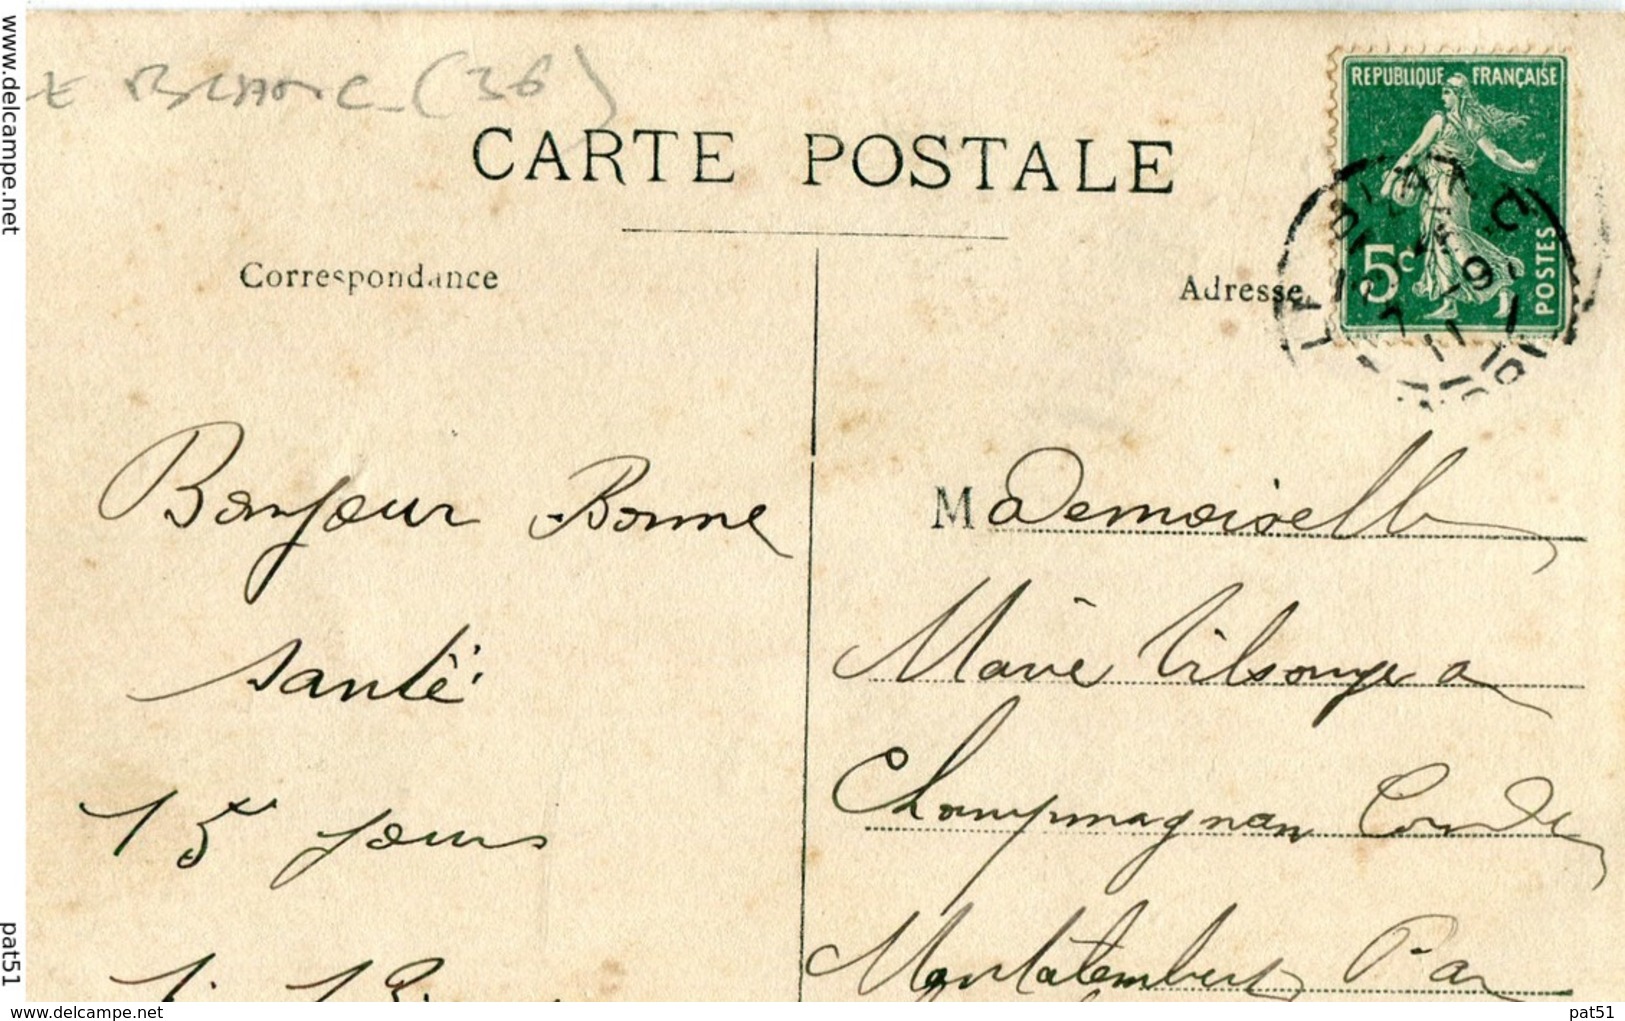 BLANC (36)
CARTE POSTALE
REPUBLIQUE FRANÇAISE
5c
POSTES
Correspondance
Adresse
Bonjour Bonne
santé
15 jours
Mademoiselle
Marie a
Champmagnan
Montalembert Par
www.delcampe.net
pat51
www.delcampe.net
pat51